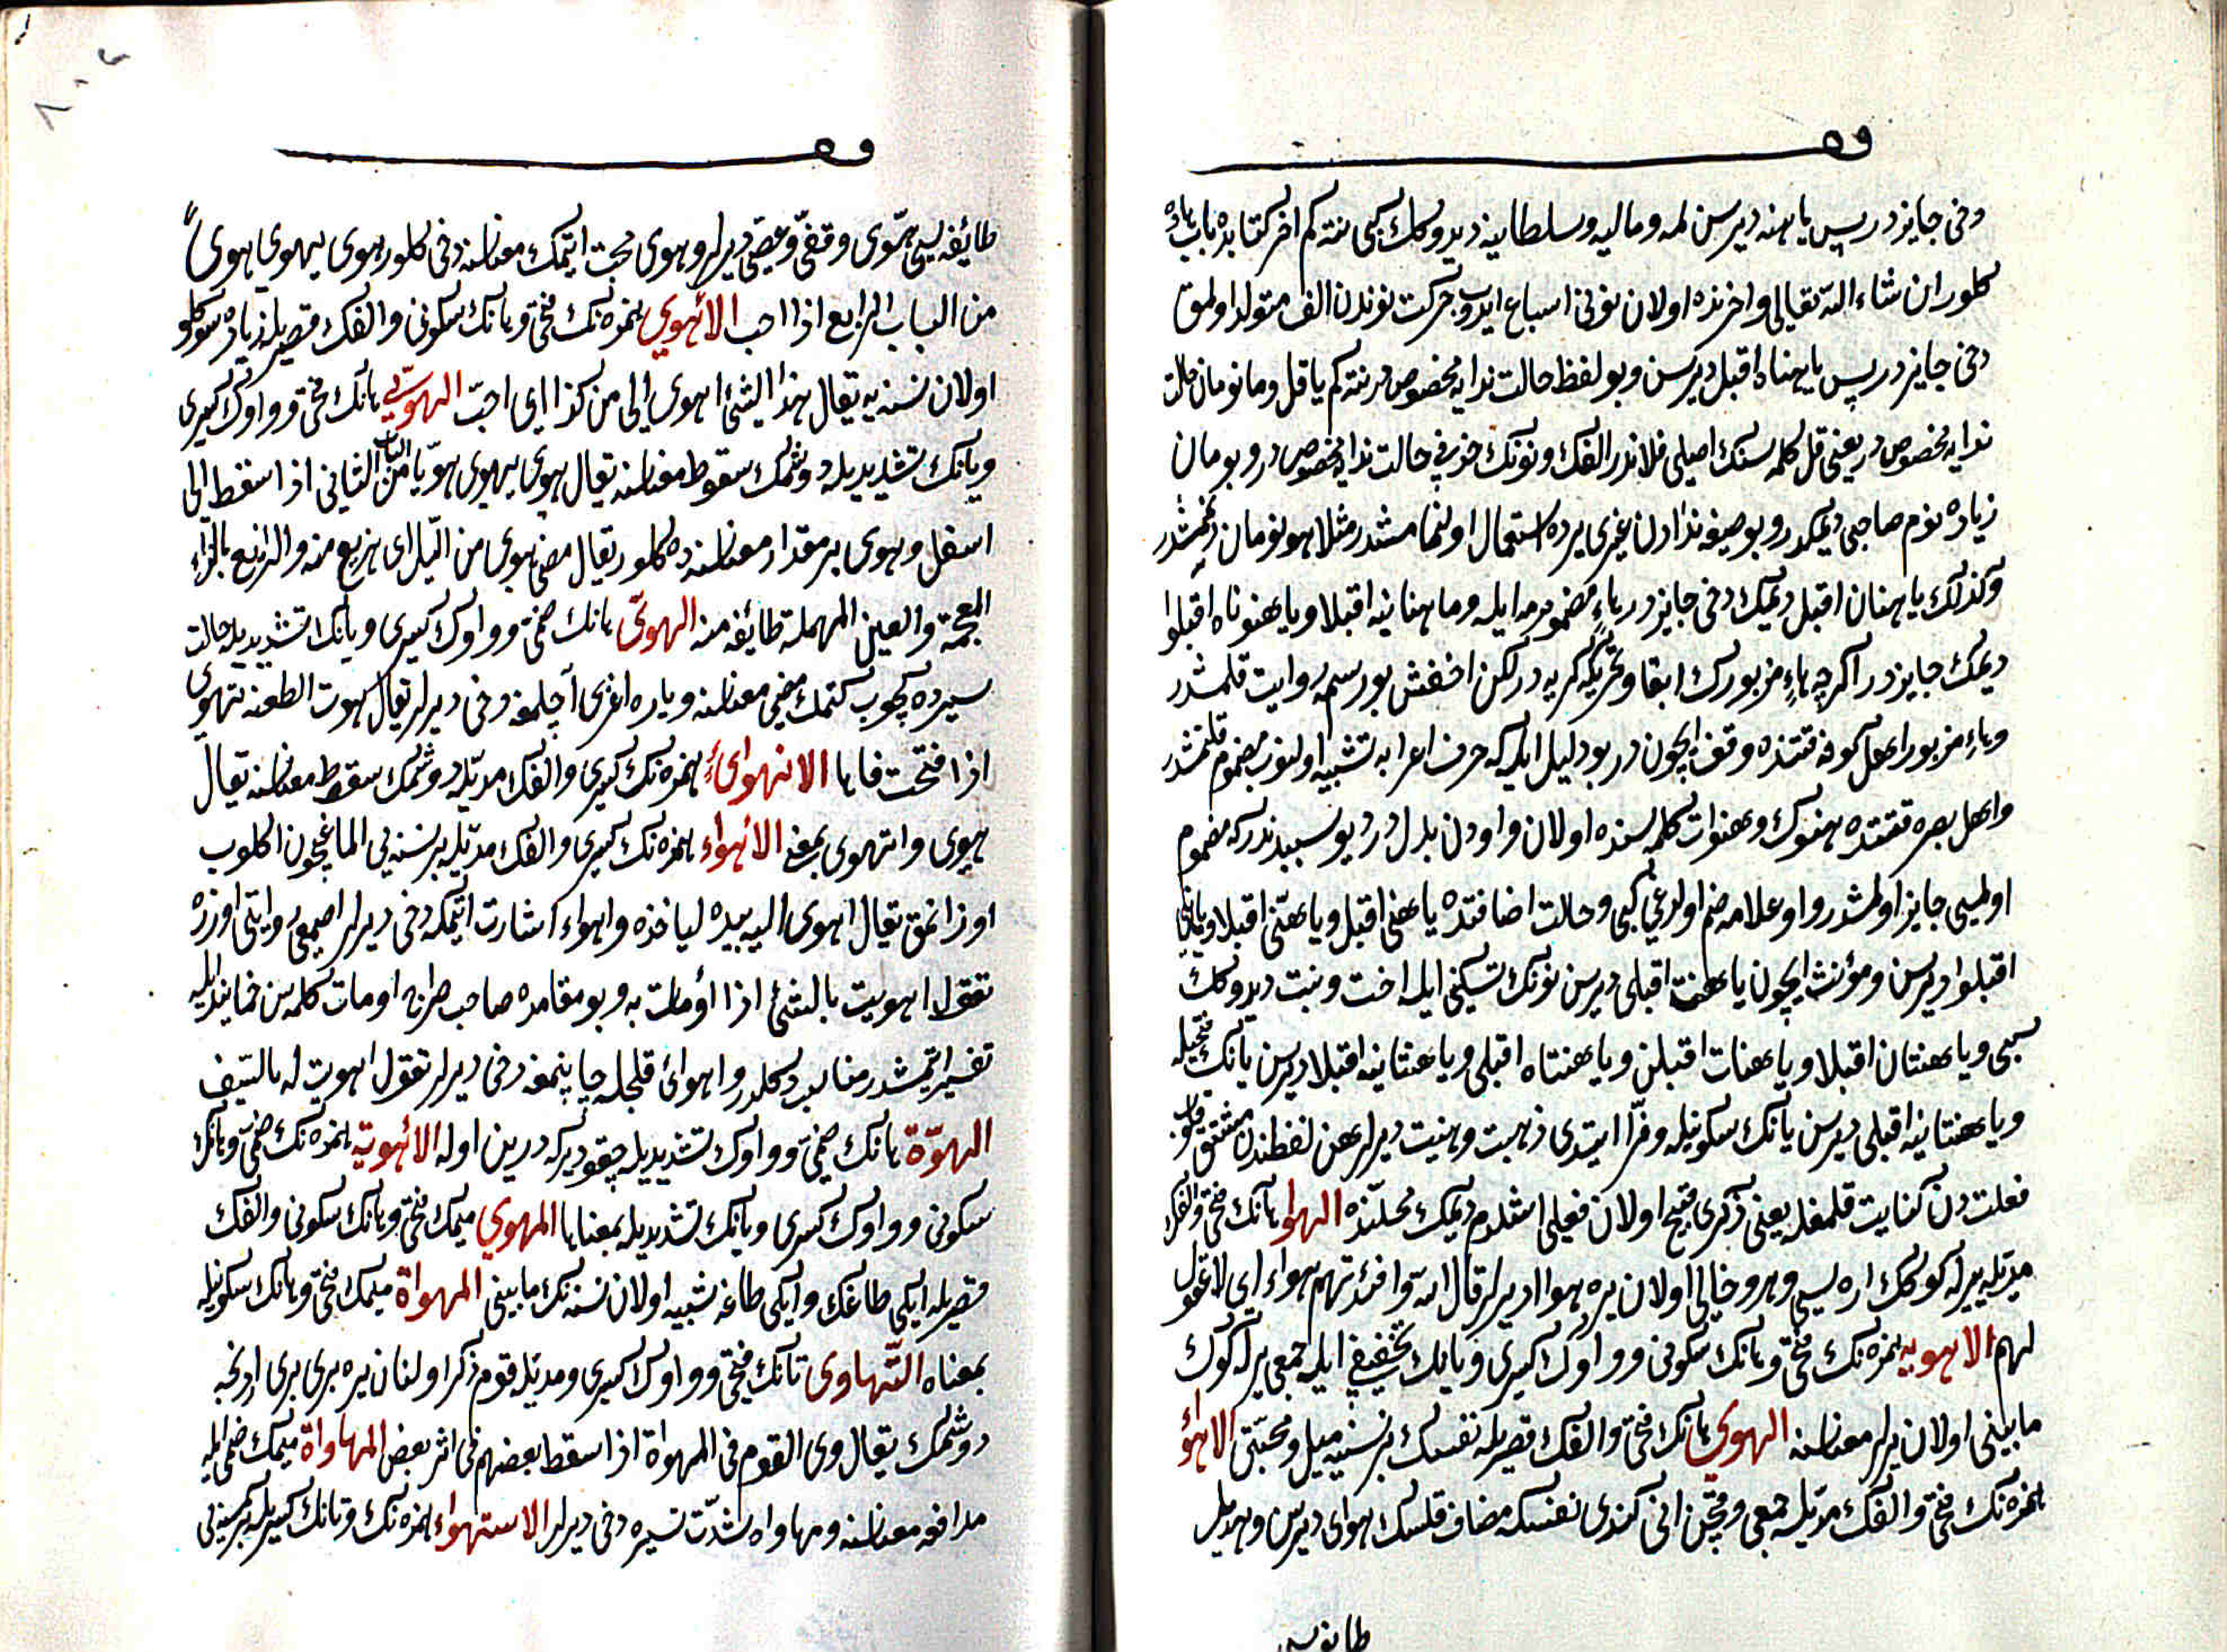 دخی جایزدر پس یا هنه دیرسن لمه ومالیه وسلطانیه دیدوکك کبی نته کم اخر کتابده باب هاده
کلور ان شاء الله تعالی واخرنده اولان نونی اسباع ایدوب حرکت نوندن الف متولد اولمق
دخی جایزدر پس یا هناه اقبل دیرسن وبو لفظ حالت ندایه مخصوصدر نته کم یا فل وما نومان حالت
ندایه مخصوصدر یعنی فل کلمه سنك اصلی فلاندر الفك ونونك حذفی حالت ندایه مخصوصدر ونومان
زیاده نوم صاحبی دیمکدر وبو صیغه ندادن غیری یرده استعمال اولنمامشدر مثلا هو نومان دینممشدر
وکذلك یا هنان اقبل دیمك دخی جایزدر هاء مضمومه ایله وما هنانیه اقبلا ویا هنوناه اقبلوا
دیمك جایزدر اکرچه هاء مزبورك ابقا وتحریکی کریه در لکن اخفش بو رسمه روایت قلمشدر
وهاء مزبور اهل کوفه قتنده وقف ایچوندر بو دلیل ایله که حرف اعرابه تشبیه اولنوب مضموم قلنمشدر
واهل بصره قتنده هنوك وهنوات کلمه سنده اولان واودن بدلدر بو سببدندرکه مضموم
اولمسی جایز اولمشدر واو علامه ضم اولدغی کبی وحالت اضافتده یا هنی اقبل ویا هنی اقبلا ویا هنی
اقبلوا دیرسن ومؤنث ایچون یا هنت اقبلی دیرسن نونك تسکینی ایله اخت وبنت دیدوکك
کبی ویا هنتان اقبلا ویا هنات اقبلن ویا هنتاه اقبلی ویا هنتانیه اقبلا دیرسن یانك فتحیله
ویا هنتانیه اقبلی دیرسن یانك سکونیله وفرّا ایتدی ذهبت وهنیت دیرلر هن لفظندن مشتق قلوب
فعلت دن کنایت قلمغله یعنی ذکری قبیح اولان فعلی اشلدم دیمك محلنده الهوا هانك فتحی والفك
مدیله ییرله کوکك اره سی وهر خالی اولان یره هوا دیرلر قال الله وافئدتهم هواء ای لا عقول
لهم الاهویه همزه نك فتحی وهانك سکونی وواوك کسری ویانك تخفیفی ایله جمعی یرله کوك
مابینی اولان یرلر معناسنه الهوی هانك فتحی والفك قصریله نفسك بر نسنیه میل ومحبتی الاهوا
همزه نك فتحی والفك مدیله جمعی وقچن انی کندی نفسکه مضاف قلسك هوای دیرسن وهذیل
طایفه سی
طایفه سی هوی وقفی وعصی دیرلر وهوی محبت ایتمك معناسنه دخی کلور هوی یهوی هوی
من الباب الرابع اذا احب الاهوی همزه نك فتحی وهانك سکونی والفك قصریله زیاده سوکلو
اولان نسنه یه یقال هذا الشئ اهوی الی من کذا ای احب الهوی هانك فتحی وواوك کسری
ویانك تشدیدیله دوشمك سقوط معناسنه یقال هوی یهوی هویا من الباب الثانی اذا سقط الی
اسفل وهوی بر مقدار معناسنده کلور یقال مضی هوی من اللیل ای هزیع منه والهزیع بالزاء
المعجمة والعین المهملة طائفة منه الهوی هانك ضمی وواوك کسری ویانك تشدیدیله حالت
سیرده کچوب کتمك مضی معناسنه ویاره اغزی آچلمغه دخی دیرلر یقال هوت الطعنة تهوی
اذا فتحت فاها الانهواء همزه نك کسری والفك مدیله دوشمك سقوط معناسنه یقال
هوی وانهوی بمعنی الاهواء همزه نك کسری والفك مدیله بر نسنه یی الماغیچون اکلوب
اوزانمق یقال اهوی الیه بیده لیاخذه واهواء اشارت ایتمکه دخی دیرلر اصمعی روایتی اوزره
تقول اهویت بالشئ اذا اومات به وبو مقامده صاحب صراح اومات کلمه سن نمایندن ایله
تفسیر ایتمشدر مناسب دکلدر واهوای قلجله چاپنمغه دخی دیرلر تقول اهویت له بالسیف
الهوّة هانك ضمی وواوك تشدیدیله چقور یرکه درین اوله الاهویة همزه نك ضمی وهانك
سکونی وواوك کسری ویانك تشدیدیله بمعناها المهوی میمك فتحی وهانك سکونی والفك
قصریله ایکی طاغك وایکی طاغه شبیه اولان نسنه نك مابینی المهواة میمك فتحی وهانك سکونیله
بمعناه التهاوی تانك فتحی وواوك کسری ومدیله قوم ذکر اولنان یره بری بری اردنجه
دوشمك یقال وی القوم فی المهواة اذا سقط بعضهم فی اثر بعض المهاواة میمك ضمی ایله
مدافعه معناسنه ومهاواه شدت سیره دخی دیرلر الاستهواء همزه نك وتانك کسریله بر کمسنه یی